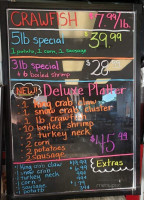 CRAWFISH $7.99/lb.
5lb special 39.99
1 potato, 2 corn, 2 sausage
3lb special $28
+ 6 boiled shrimp
NEW! Deluxe Platter
1 king crab claw
1 snow crab cluster
1 lb crawfish
10 boiled shrimp
2 turkey neck
2 corn
2 potatoes
2 sausage
$45.99
Extras
king crab claw
snow crab
turkey neck
corn
sausage
potato